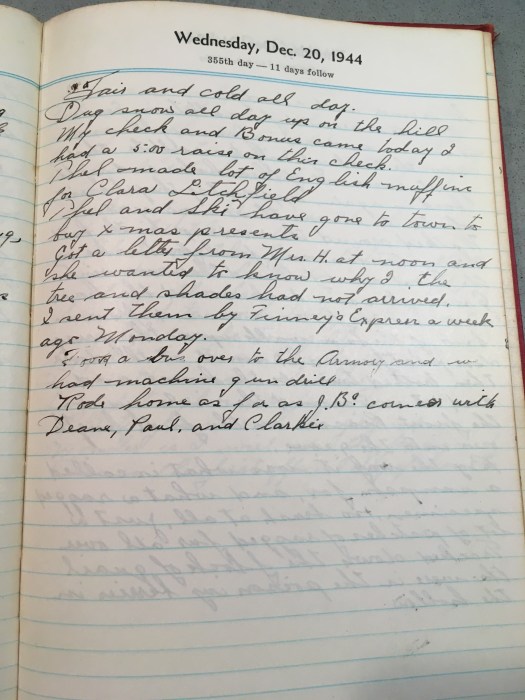 Wednesday, Dec. 20, 1944
355th day — 11 days follow
Fair and cold all day.
Dug snow all day up on the hill
My check and Bonus came today I
had a 5:00 raise on this check.
Phel made lot of English muffins
for Clara Litchfield
Phel and Ski have gone to town to
buy x mas presents
Got a letter from Mrs. H. at noon and
she wanted to know why the
tree and shades had not arrived.
I sent them by Finney's Express a week
ago Monday.
Took a bus over to the Armory and w
had machine gun drill
Rode home as far as J.B's corner with
Deane, Paul, and Clarkie